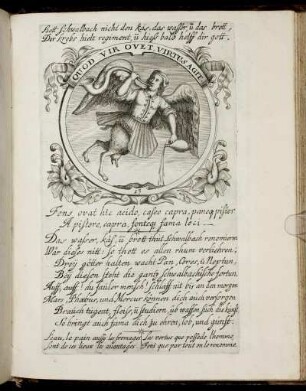 Rett Schwalbach nicht den käs, das wasser, ü das brott,
Der Krebs hielt regiment, ü hieß bald helff dir gott.
QUOD VIR OVET VIRTUS AGIT
Fons ovat hic acido, caseo capra, paneq pistor.
A pistore, capra, fonteq fama loci.
Das wasser, käß, ü brott thut Schwalbach renomiern
Wär dieses nitt: So thett es allen rhum verliehren.
Dreÿ götter halten wacht Pan, Ceres, ü Neptun,
Beÿ diesen steht die gantz schwalbachische fortun.
Auff, auff! du fauler mensch! Schlaff nit bis an den morgen
Mars, Phœbus, und Mercur können dich auch versorgen
Brauch tugent, fleiß, ü studiern,
So bringt auch fama dich zu ehren, lob, und gunst.
L'eau, le pain aussy le fromage: Les vertus que possede l'homme,
sont de ces lieux les avantages: Font que par tout on le renomme.